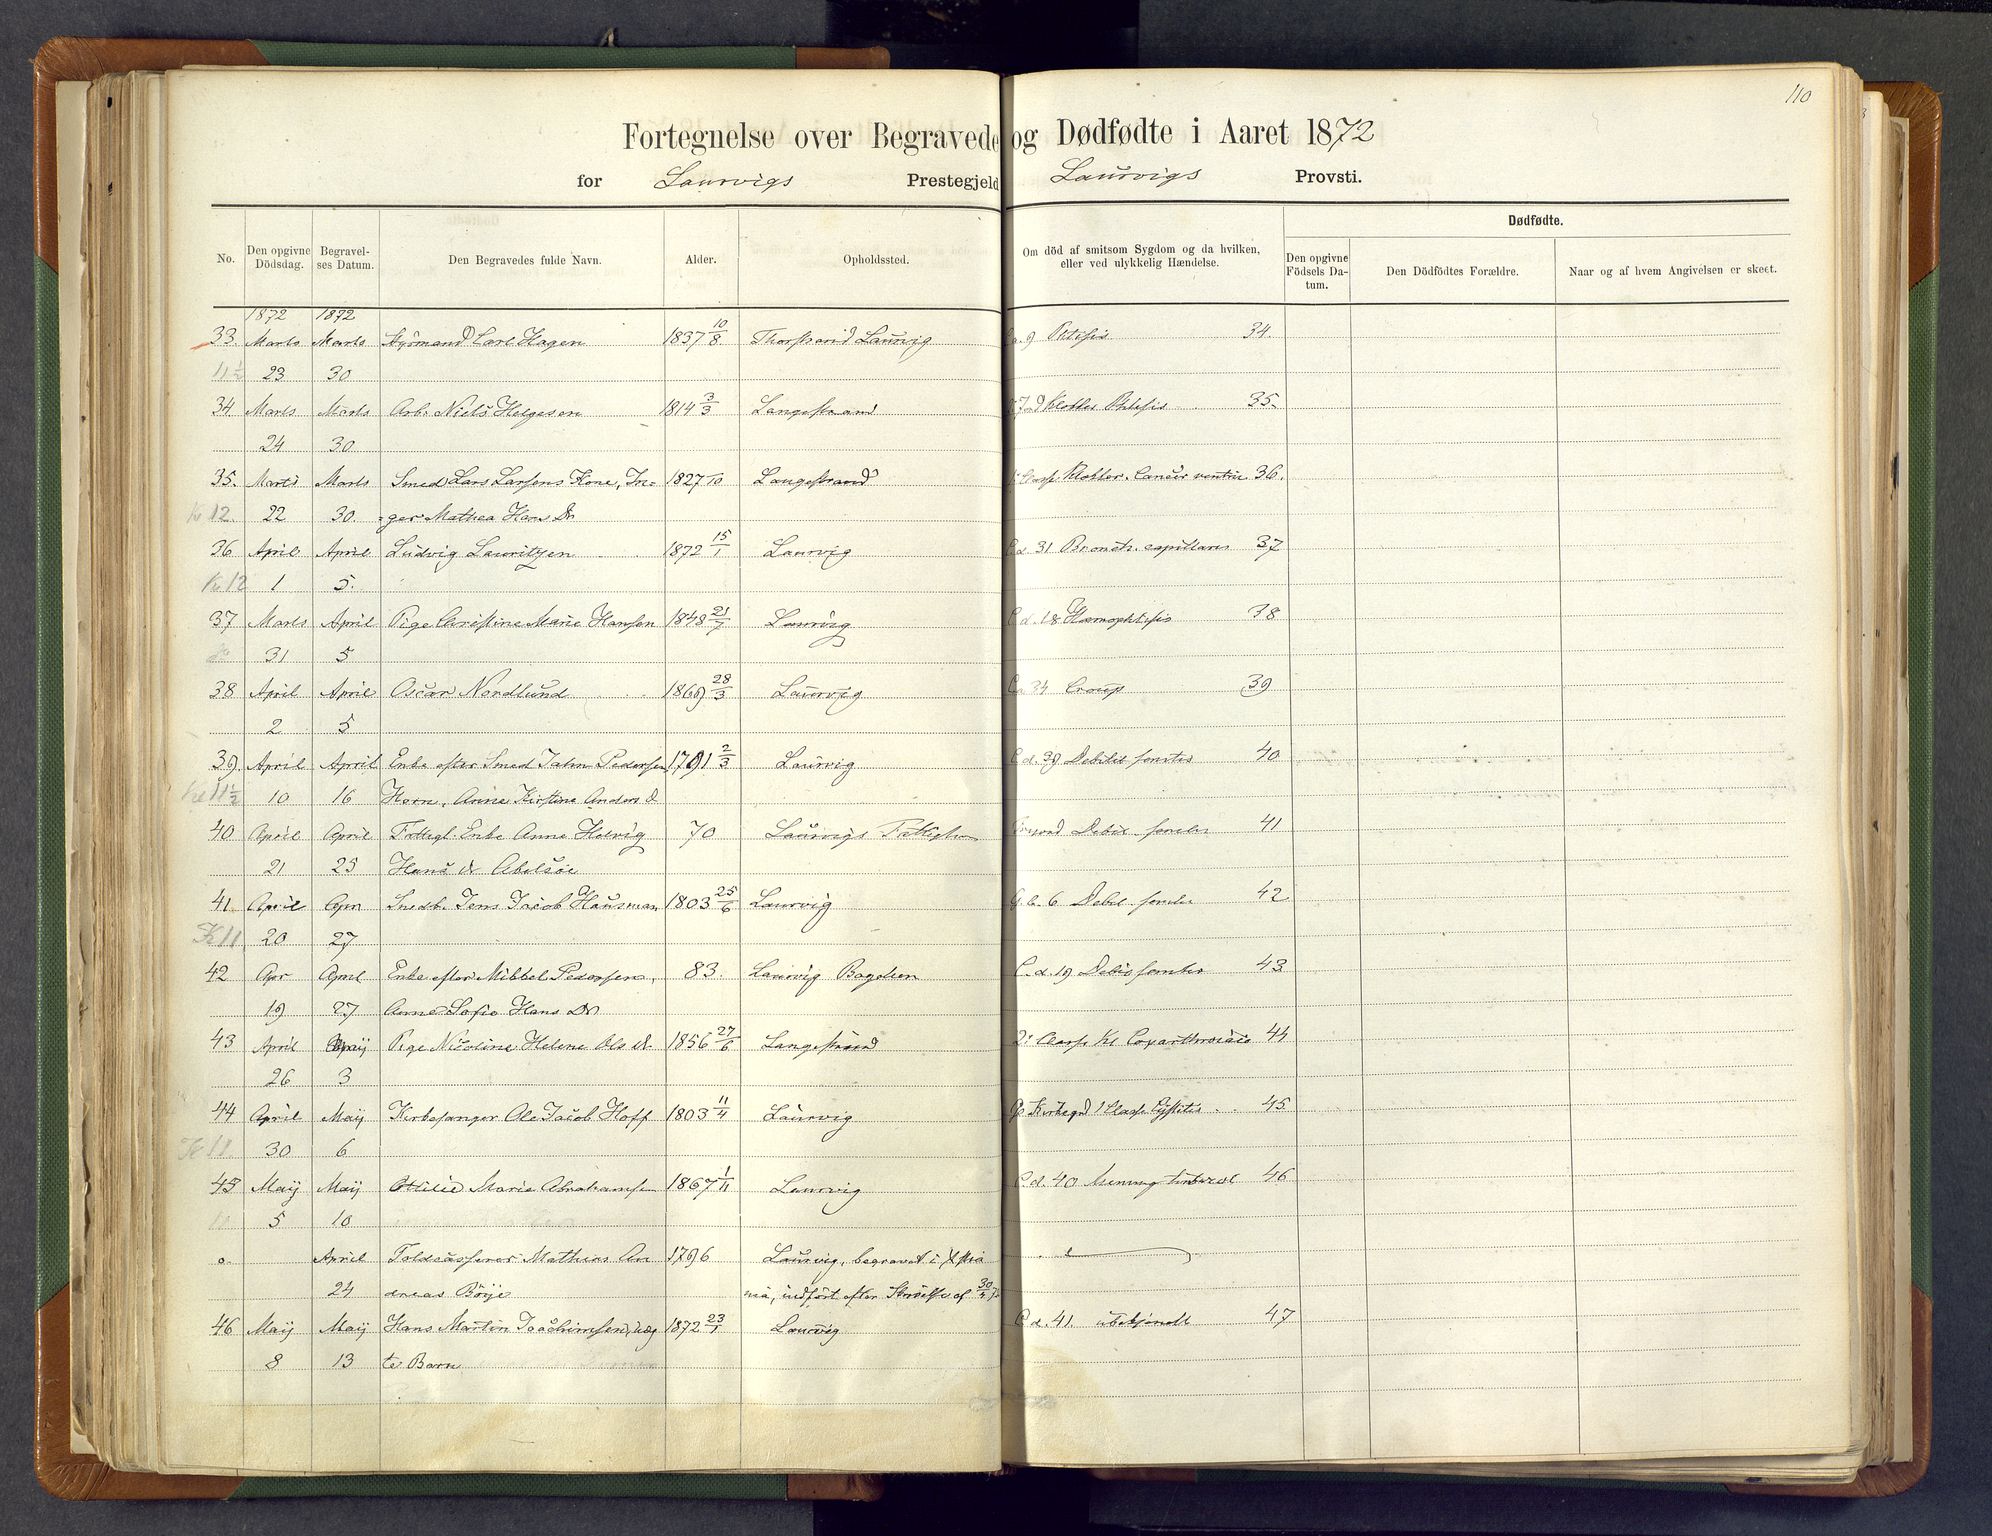 110
Fortegnelse over Begravede og Dødfødte i Aaret 1872
for Laurvigs Prestegjeld Laurvigs Provsti.
No. Den opgivne Dödsdag. Begravelses Datum. Den Begravedes fulde Navn. Alder. Opholdssted. Om död af smitsom Sygdom og da hvilken, eller ved ulykkelig Hændelse. Dødfødte.
Den opgivne Födsels Datum. Den Dödfödtes Forældre. Naar og af hvem Angivelsen er skeet.
1872 1872
33. Marts Marts Carl Hagen 1837 10/8 Laurvig 34.
11 1/2 23 30
34 Marts Marts Arb. Niels Helgesen 1814 3/3 Langestrand 35.
24 30
35. Marts Marts Smed Lars Larsens Kone, In= 1827 /10 Langestrand 36.
Kl 12. 22 30. =ger Mathea Hans Dr
36 April April Ludvig Lauritzen 1872 15/1 Laurvig C d 31 Bronch. capillaris 37
Kl 12 1 5.
37 Marts April Pige Christine Marie Hansen 1848 21/7 Laurvig C d. 18 Hæmophtisis 38
31 5
38 April April Oscar Nordlund 1869 28/3 Laurvig 34 Croup 39
2 5
39. April April Enke efter Smed Jahn Pedersen 1791 2/3 Laurvig C d. 39 40
Kl 11 1/2 10 16 Horn, Anne Kirstine Anders d
40 April April Fattigl. Enke Anne Helvig 70 Laurvigs 41
21 25 Hans dr Abelsöe
41 April Jens Jacob Hausman 1803 25/6 Laurvig 6 Debil. 42
Kl 11 20 27
42 Apr April Enke efter Mikkel Pedersen, 83. Laurvig C. d. 19 43
19 27 Anne Sofie Hans Dr
43 April Maij Pige Nicoline Helene Ols dr 1856 27/6 Langestrand 2 Classe Kl 44
26 3
44 April Maij Kirkesanger Ole Jacob Hoff 1803 11/4 Laurvig Kirkegd 1 Classe Cystitis 45
Kl 11. 30 6
45 Maij Maij Ottilie Marie Abrahamsen 1867 1/11 Laurvig C d. 40 46
11 5 10
o. April Toldcasserer Mathias An 1796 Laurvig, begravet i
24 dreas Börje indfört efter af 30/4
46 Maij Maij Hans Martin Joachimsen, uæg 1872 23/1 Laurvig C d. 41. ubekjendt 47
8 13 te Barn